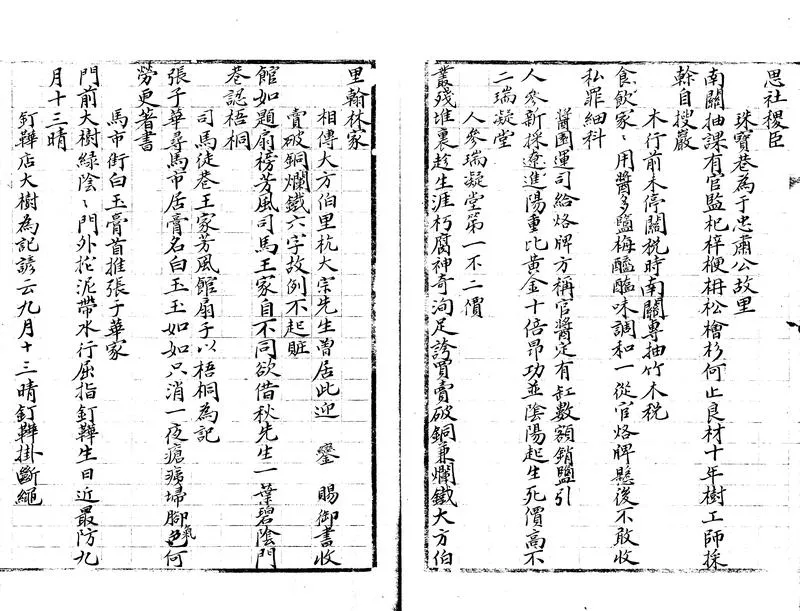 思社稷臣
珠寶巷為于忠肅公故里
南關抽課有官監杞梓楩枬松檜杉何止良材十年樹工師採
斡自搜巖
木行前未停關梲時南關專抽竹木稅
食飲家〻用醬多鹽梅醯醢味調和一從官烙牌懸後不敢收
私罪細科
醬園運司給烙牌方稱官醬定有缸數額銷鹽引
人參新採遼進陽重比黃金十倍昂功並陰陽起生死價高不
二瑞凝堂
人參瑞凝堂第一不二價
叢殘堆裏趁生涯朽腐神奇洵足誇買賣破銅兼爛鐵大方伯
里翰林家
相傳大方伯里杭大宗先生曽居此迎 鑾 賜御書收
賣破銅爛鐵六字故例不起賍
館如題扇榜芳風司馬王家自不同欲借秋先生一葉碧陰門
巷認梧桐
司馬徒巷王家芳風館扇子以梧桐為記
張子華尋馬市居膏名白玉玉如如只消一夜瘡痍埽腳氣何
勞更著書
馬市街白玉膏首推張子華家
門前大樹綠陰〻門外拕泥帶水行屈指釘鞾生日近最防九
月十三晴
釘鞾店大樹為記諺云九月十三晴釘鞾掛斷繩